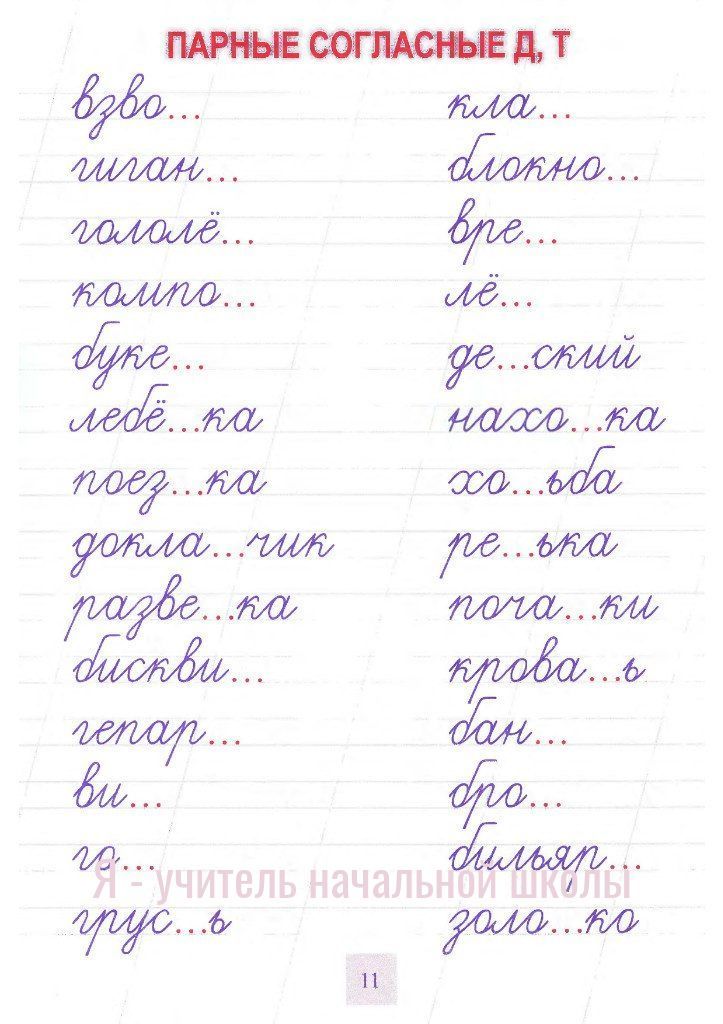 ПАРНЫЕ СОГЛАСНЫЕ Д, Т
взво...
гиган...
гололё...
компо...
буке...
лебё...ка
поез...ка
докла...чик
разве...ка
бискви...
гепар...
ви...
го...
грус...ь
кла...
блокно...
вре...
лё...
де...ский
нахо...ка
хо...ьба
ре...ька
поча...ки
крова...ь
бан...
бро...
бильяр...
золо...ко
Я - учитель начальной школы
11